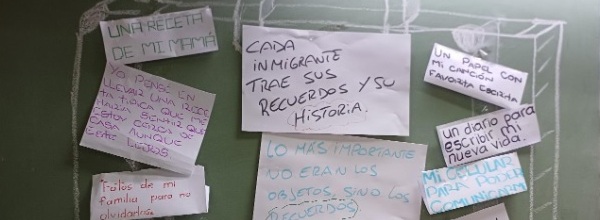 UNA RECETA
DE MI MAMÁ
YO PENSÉ EN
LLEVAR UNA
TÍPICA QUE ME
HARÍA SENTIR QUE
ESTOY CERCA DE
CASA AUNQUE
ESTÉ LEJOS
Fotos de mi
familia para no
olvidarlos.
CADA
INMIGRANTE
TRAE SUS
RECUERDOS Y SU
HISTORIA.
LO MÁS IMPORTANTE
NO ERAN LOS
OBJETOS, SINO LOS
RECUERDOS
UN PAPEL CON
MI CANCIÓN
FAVORITA ESCRITA
un diario para
escribir mi
nueva vida.
MI CELULAR
PARA PODER
COMUNICARM